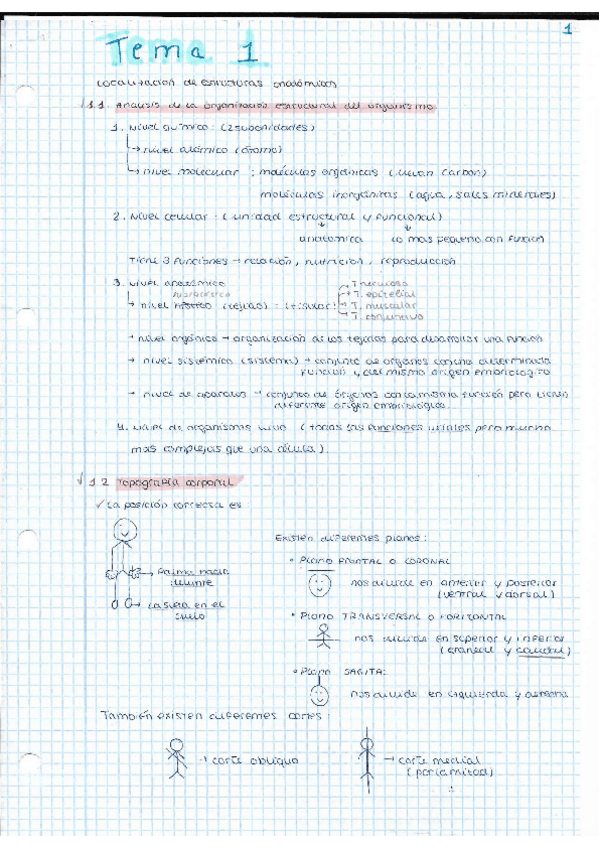 1
Tema 1
Localización de estructuras anatómicas
1.1. Analisis de la organización estructural del organismo.
1. Nivel químico: (2 subunidades)
→ nivel atómico (átomo)
→ nivel molecular: moléculas orgánicas (llevan carbon)
moléculas inorgánicas (agua, sales minerales)
2. Nivel celular: (unidad estructural y funcional)
anatomica lo mas pequeño con función
Tiene 3 funciones → relación, nutrición, reproducción
3. Nivel anatómico
histológico
→ nivel (tejidos): (tisular)
T. nervioso
T. epitelial
T. muscular
T. conjuntivo
→ nivel orgánico → organización de los tejidos para desarrollar una función
→ nivel sistémico (sistema) → conjunto de organos con una determinada
función y del mismo origen embriologico
→ nivel de aparatos → conjunto de órganos con la misma función pero tienen
diferente origen embriológico.
4. Nivel de organismo vivo (todas las funciones vitales pero mucho
mas complejas que una célula).
√ 1.2 Topografía corporal
✓ La posición correcta es
→ Palma hacia
delante
→ La suela en el
suelo
Existen diferentes planos:
• Plano FRONTAL O CORONAL
nos divide en anterior y posterior
(ventral y dorsal)
• Plano TRANSVERSAL O HORIZONTAL
nos divide en superior y inferior
(craneal y caudal)
• Plano SAGITAL
nos divide en izquierda y derecha
También existen diferentes cortes:
→ corte obliquo
→ corte medial
(por la mitad)